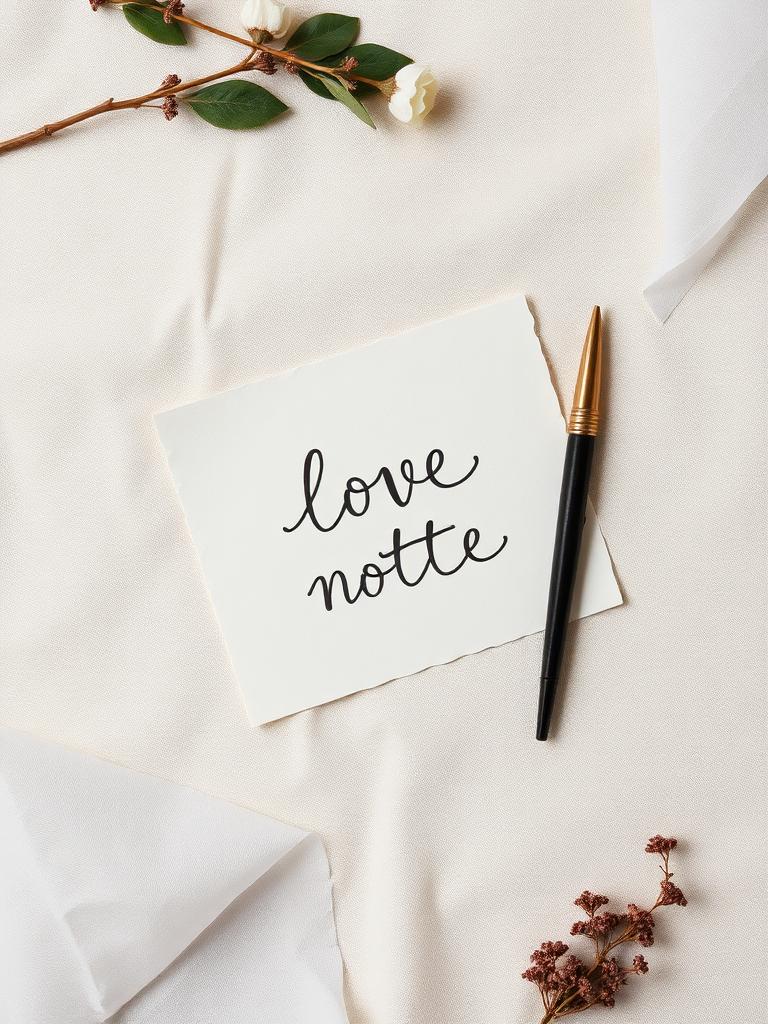 love
notte